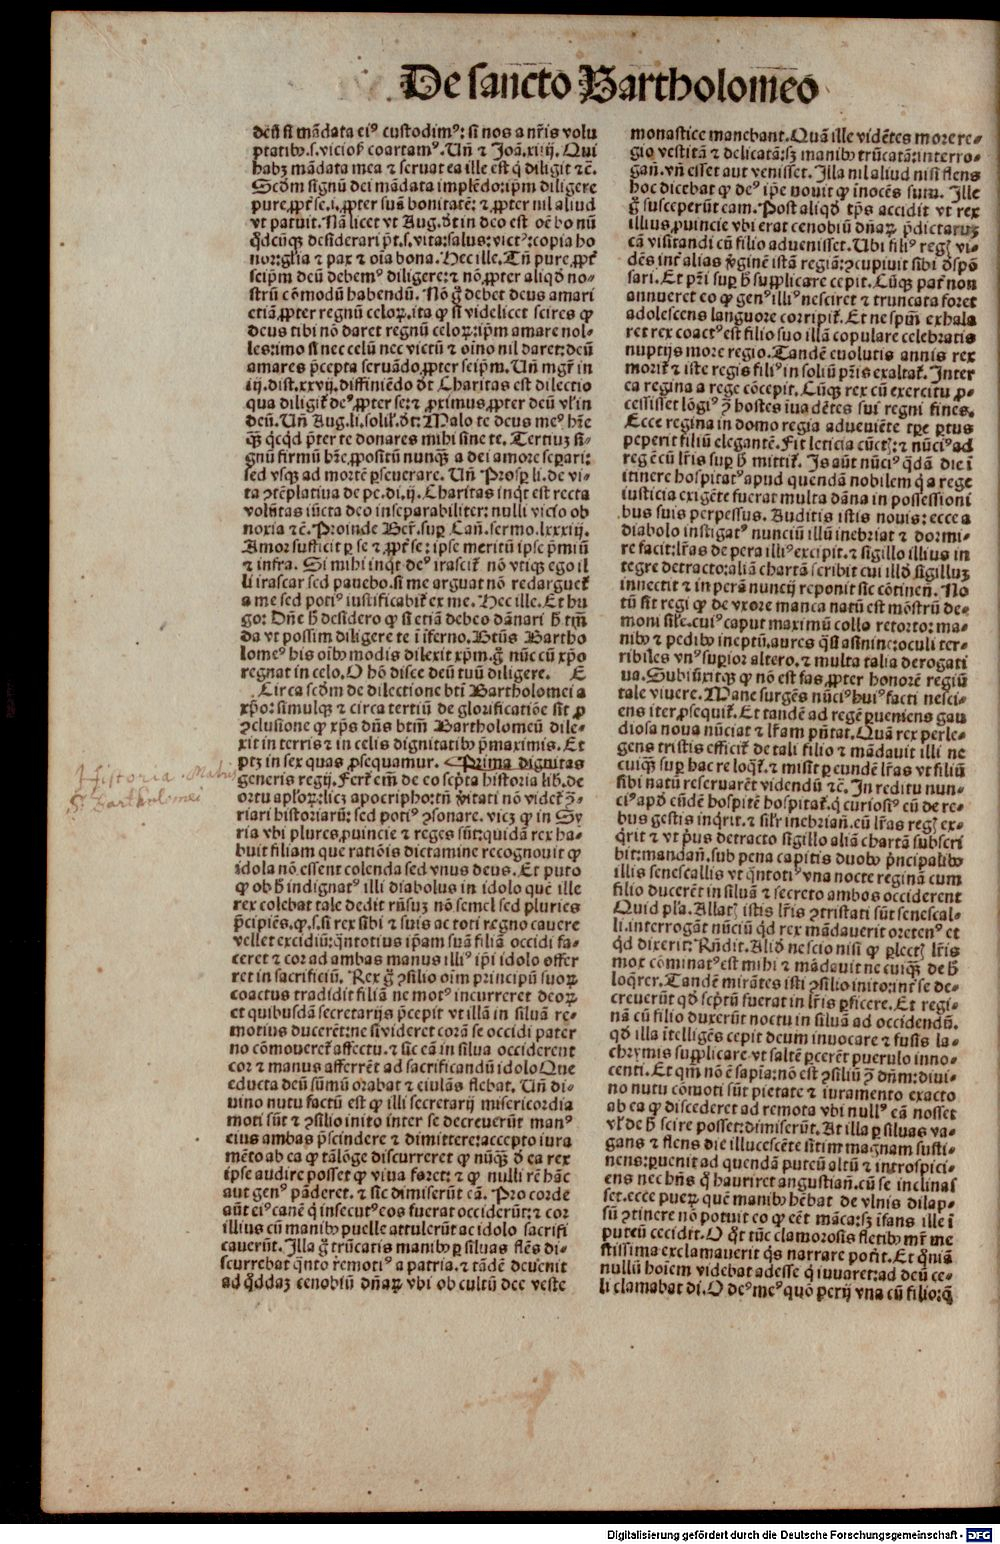 De sancto Bartholomeo
deū si mādata eiꝰ custodimꝰ: si nos a nr̄is volu
ptatibꝫ .s. viciosꝭ coartamꝰ. Vn̄ ⁊ Joā. xiiij. Qui
habꝫ mādata mea ⁊ seruat ea ille est q̇ diligit ⁊c̄.
Scdm̄ signū dei mādata implēdo: ip̄m diligere
pure, ꝓpt̄ se .i. ꝓpter suā bonitatē: ⁊ ꝓpter nil aliud
vt patuit. Nā licet vt Aug. dt̄ in deo est oē bo nū
qd̄cūqꝫ desiderari pt̄ .s. vita: salus: victꝰ: copia ho
nor: gl̄ia ⁊ pax ⁊ oīa bona. Hec ille. Tn̄ pure, ꝓpt̄
seip̄m deū debemꝰ diligere: ⁊ nō ꝓpter aliqd̄ no-
strū cōmodū habendū. Nō g̊ debet deus amari
etiā ꝓpter regnū celoꝝ. ita ꝙ si videlicet scires ꝙ
deus tibi nō daret regnū celoꝝ: ip̄m amare nol-
les: imo si nec celū nec victū ⁊ oīno nil daret: deū
amares p̄cepta seruādo ꝓpter seip̄m. Vn̄ mgr̄ in
iij. dist. xxvij. diffiniēdo dt̄ Charitas est dilectio
qua diligit̄ deꝰ ꝓpter se: ⁊ ꝓximus ꝓpter deū vl̓ in
deū. Vn̄ Aug. li. solil. dt̄: Malo te deus meꝰ hr̄e
qꝫ qͥcqd̄ p̄ter te donares mihi sine te. Tertiuꝫ si-
gnū firmū hr̄e ꝓpositū nunqꝫ a dei amore seꝑari:
sed vsqꝫ ad mortē ꝑseuerare. Vn̄ Prosꝑ li. de vi-
ta ꝯtēplatiua de pe. di. ij. Charitas inqͥt est recta
volūtas iūcta deo inseparabiliter: nulli vicio ob
noxia ⁊c̄. Proinde Ber̄. suꝑ Can̄. sermo. lxxxiij.
Amor sufficit ꝑ se ⁊ ꝓpt̄ se: ipse meritū ipse p̄miū
⁊ infra. Si mihi inqͥt deꝰ irascit̄ nō vtiqꝫ ego il
li irascar sed pauebo. si me arguat nō redarguet̄
a me sed potiꝰ iustificabit̄ ex me. Hec ille. Et hu
go: Dn̄e h̄ desidero ꝙ si etiā debeo dānari h̄ tm̄
da vt possim diligere te ī īferno. Btūs Bartho
lomeꝰ his oībꝫ modis dilexit xp̄m. g̊ nūc cū xp̄o
regnat in celo. O hō disce deū tuū diligere. E
Circa scdm̄ de dilectione bt̄i Bartholomei a
xp̄o: simulqꝫ ⁊ circa tertiū de glorificatiōe sit ꝓ
ꝯclusione ꝙ xp̄s dn̄s btm̄ Bartholomeū dile-
xit in terris ⁊ in celis dignitatibꝫ p̄maximis. Et
ptꝫ in sex quas ꝓsequamur. Prima dignitas
generis regij. Fert̄ em̄ de eo scp̄ta historia lib. de
ortu apl̄oꝝ: licꝫ apocripho: tn̄ v̓itati nō videt̄ ꝯ-
riari historiarū: sed potiꝰ ꝯsonare. vicꝫ ꝙ in Sy
ria vbi plures ꝓuincie ⁊ reges sūt: quidā rex ha-
buit filiam que ratiōis dictamine recognouit ꝙ
idola nō essent colenda sed vnus deus. Et puto
ꝙ ob h̄ indignatꝰ illi diabolus in idolo quē ille
rex colebat tale dedit rn̄suꝫ nō semel sed pluries
p̄cipiēs. ꝙ .s. si rex sibi ⁊ suis ac toti regno cauere
vellet excidiū: qͣntotius ip̄am suā filiā occidi fa-
ceret ⁊ cor ad ambas manus illiꝰ ip̄i idolo offer
ret in sacrificiū. Rex g̊ ꝯsilio oīm principū suoꝝ
coactus tradidit filiā ne motꝰ incurreret deoꝝ
et quibusdā secretarijs p̄cepit vt illā in siluā re-
motius ducerēt: ne si videret corā se occidi pater
no cōmoueret̄ affectu. ⁊ sic eā in silua occiderent
cor ⁊ manus afferrēt ad sacrificandū idolo Que
educta deū sūmū orabat ⁊ eiulās flebat. Vn̄ di-
uino nutu factū est ꝙ illi secretarij misericordia
moti sūt ⁊ ꝯsilio inito inter se decreuerūt manꝰ
eius ambas p̄scindere ⁊ dimittere: accepto iura
mēto ab ea ꝙ tālōge discurreret ꝙ nūqꝫ d̓ ea rex
ipse audire posset ꝙ viua foret: ⁊ ꝙ nulli rē hāc
aut genꝰ pāderet. ⁊ sic dimiserūt eā. Pro corde
aūt eiꝰ canē q̇ insecutꝰ eos fuerat occiderūt: ⁊ cor
illius cū manibꝫ puelle attulerūt ac idolo sacrifi
cauerūt. Illa g̊ trūcatis manibꝫ ꝑ siluas flēs di-
scurrebat qͣnto remotiꝰ a patria. ⁊ tādē deuenit
ad qd̄daꝫ cenobiū dn̄aꝝ vbi ob cultū dee veste
monastice manebant. Quā ille vidētes more re-
gio vestitā ⁊ delicatā: sꝫ manibꝫ trūcatā: interro-
gan̄. vn̄ esset aut venisset. Illa nil aliud nisi flens
hoc dicebat ꝙ deꝰ ip̄e nouit ꝙ inocēs sum. Ille
g̊ susceperūt eam. Post aliqd̄ tp̄s accidit vt rex
illius ꝓuincie vbi erat cenobiū dn̄aꝝ p̄dictaruꝫ
cā visitandi cū filio aduenisset. Ubi filiꝰ regꝭ vi-
dēs int̄ alias v̓ginē istā regiā: ꝯcupiuit sibi d̓spō
sari. Et pr̄i suꝑ h̄ supplicare cepit. Cūqꝫ pat̄ non
annueret eo ꝙ genꝰ illiꝰ nesciret ⁊ truncata foret
adolescens languore corripit̄. Et ne spm̄ exhala
ret rex coactꝰ est filio suo illā copulare celebratis
nuptijs more regio. Tandē euolutis annis rex
morit̄ ⁊ iste regis filiꝰ in soliū pr̄is exaltat̄. Inter
ea regina a rege cōcepit. Cūqꝫ rex cū exercitu ꝓ-
cessisset lōgiꝰ ꝯ hostes īuadētes sui regni fines.
Ecce regina in domo regia adueniēte tꝑe ꝑtus
peperit filiū elegantē. Fit leticia cūctꝭ: ⁊ nūciꝰ ad
regē cū lr̄is suꝑ h̄ mittit̄. Is aūt nūciꝰ qͣdā die ī
itinere hospitatꝰ apud quendā nobilem q̇ a rege
iusticia exigēte fuerat multa dāna in possessioni
bus suis perpessus. Auditis istis nouis: ecce a
diabolo instigatꝰ nunciū illū inebriat ⁊ dormi-
re facit: lr̄as de pera illiꝰ excipit. ⁊ sigillo illius in
tegre detracto: aliā chartā scribit cui illd̄ sigilluꝫ
innectit ⁊ in perā nuncij reponit sic cōtinen̄. No
tū sit regi ꝙ de vxore manca natū est mōstrū de-
moni sil̓e. cuiꝰ caput maximū collo retorto: ma-
nibꝫ ⁊ pedibꝫ ineptū. aures qͣsi asinine: oculi ter-
ribiles vnꝰ suꝑior altero. ⁊ multa talia derogati
ua. Subiūxitqꝫ ꝙ nō est fas ꝓpter honorē regiū
tale viuere. Mane surgēs nūciꝰ huiꝰ facti nesci-
ens iter ꝓsequit̄. Et tandē ad regē ꝑueniens gau
diosa noua nūciat ⁊ lr̄am pn̄tat. Quā rex perle-
gens tristis efficit̄ de tali filio ⁊ mādauit illi ne
cuiqꝫ suꝑ hac re loqt̄. ⁊ misit ꝑ eundē lr̄as vt filiū
sibi natū reseruarēt videndū ⁊c̄. In reditu nun-
ciꝰ apd̓ eūdē hospitē hospitat̄. q̇ curiosiꝰ eū de re-
bus gestis inqͥrit. ⁊ sil̓r inebrian̄. eū lr̄as regꝭ ex-
qͥrit ⁊ vt pͥus detracto sigillo aliā chartā subscri
bit: mandan̄. sub pena capitis duobꝫ pͥncipalibꝫ
illis senescallis vt qͣntotiꝰ vna nocte reginā cum
filio ducerēt in siluā ⁊ secreto ambos occiderent
Quid pl̓a. Allatꝭ istis lr̄is ꝯtristati sūt senescal-
li. interrogāt nūciū qd̓ rex mādauerit oretenꝰ et
qͥd dixerit: Rn̄dit. Aliud nescio nisi ꝙ ꝑlectꝭ lr̄is
mox cōminatꝰ est mihi ⁊ mādauit ne cuiqꝫ de h̄
loqͣrer. Tandē mirātes isti ꝯsilio inito: int̄ se de-
creuerūt qd̓ scp̄tū fuerat in lr̄is ꝑficere. Et regi-
nā cū filio duxerūt noctu in siluā ad occidendū.
qd̓ illa ītelligēs cepit deum inuocare ⁊ fusis la-
chrymis supplicare vt saltē ꝑcerēt puerulo inno-
centi. Et qm̄ nō ē sapīa: nō est ꝯsiliū ꝯ dn̄m: diui-
no nutu cōmoti sūt pietate ⁊ iuramento exacto
ab ea ꝙ discederet ad remota vbi nullꝰ eā nosset
vl̓ de h̄ scire posset: dimiserūt. At illa ꝑ siluas va-
gans ⁊ flens die illucescēte sitim magnam susti-
nens: ꝑuenit ad quendā puteū altū ⁊ introspici-
ens nec hn̄s q̊ hauriret angustian̄. cū se inclinas
set. ecce pueꝝ quē manibꝫ hēbat de vlnis dilap-
sū ꝯtinere nō potuit eo ꝙ eēt māca: sꝫ īfans ille ī
puteū cecidit. O qͣt tūc clamorosis fletibꝫ mr̄ me
stissima exclamauerit qͥs narrare pot̄it. Et qͦniā
nullū hoīem videbat adesse q̇ iuuaret: ad deū ce-
li clamabat di. O deꝰ meꝰ quō perij vna cū filio: qͣ
Historia Matris
S. Bartholomei
Digitalisierung gefördert durch die Deutsche Forschungsgemeinschaft - DFG